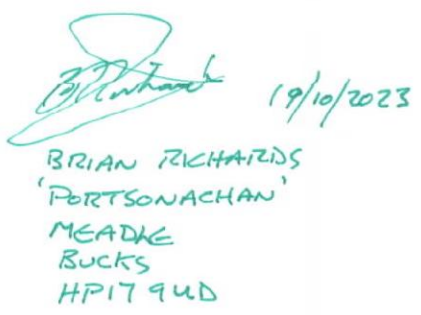 B Richards 19/10/2023
BRIAN RICHARDS
'PORTSONACHAN'
MEADLE
BUCKS
HP17 9UD